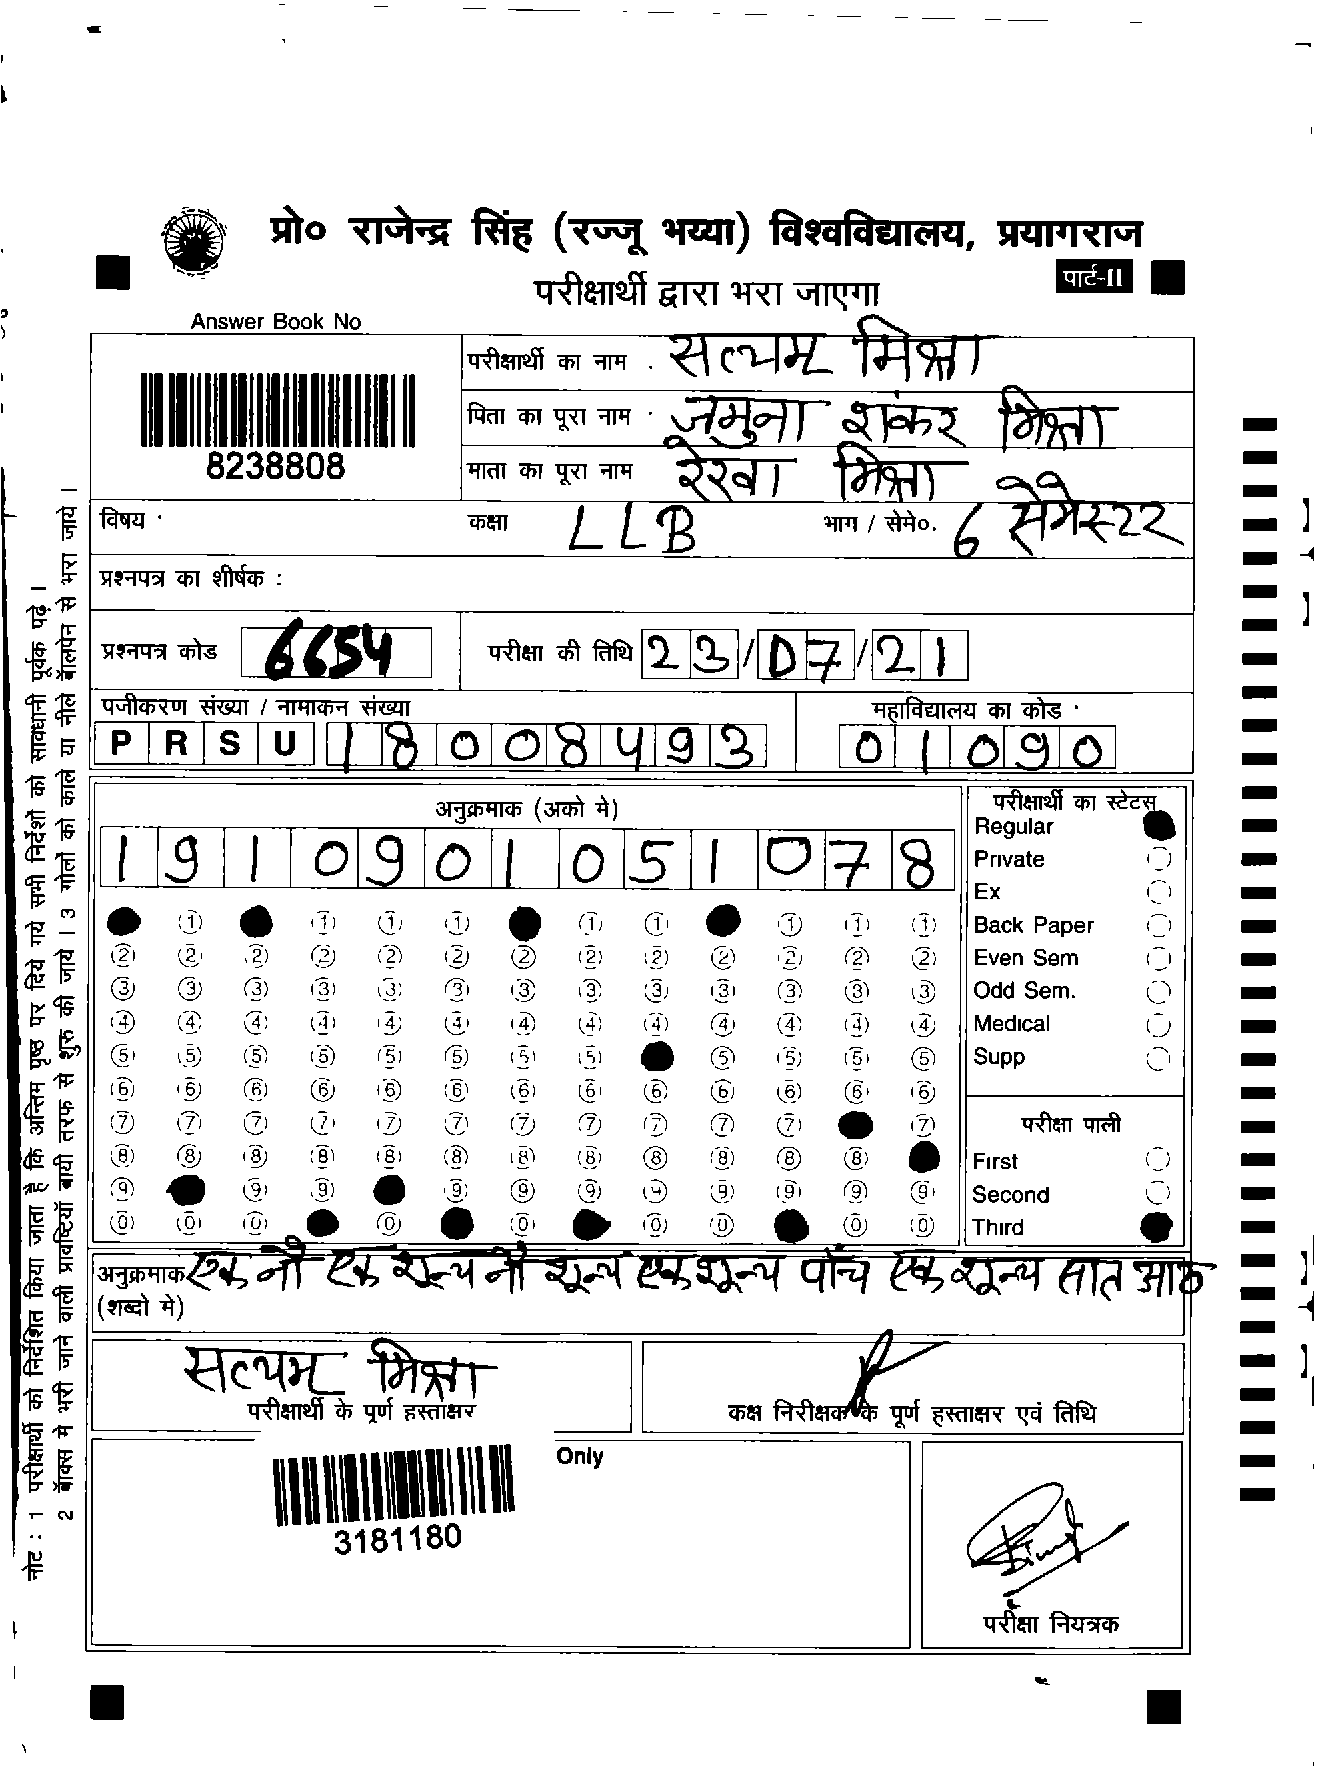 प्रो० राजेन्द्र सिंह (रज्जू भय्या) विश्वविद्यालय, प्रयागराज
पार्ट-II
परीक्षार्थी द्वारा भरा जाएगा
Answer Book No
8238808
परीक्षार्थी का नाम . सत्यम मिश्रा
पिता का पूरा नाम · जमुना शंकर मिश्रा
माता का पूरा नाम रेखा मिश्रा
विषय · कक्षा LLB भाग / सेमे०. 6 सेमेस्टर
प्रश्नपत्र का शीर्षक :
प्रश्नपत्र कोड 6654 परीक्षा की तिथि 23/07/21
पजीकरण संख्या / नामाकन संख्या महाविद्यालय का कोड ·
P R S U 1 8 0 0 8 4 9 3 0 1 0 9 0
अनुक्रमाक (अको मे)
1 9 1 0 9 0 1 0 5 1 0 7 8
1 1 1 1 1 1 1 1 1
2 2 2 2 2 2 2 2 2 2 2 2 2
3 3 3 3 3 3 3 3 3 3 3 3 3
4 4 4 4 4 4 4 4 4 4 4 4 4
5 5 5 5 5 5 5 5 5 5 5 5
6 6 6 6 6 6 6 6 6 6 6 6 6
7 7 7 7 7 7 7 7 7 7 7 7
8 8 8 8 8 8 8 8 8 8 8 8
9 9 9 9 9 9 9 9 9 9 9
0 0 0 0 0 0 0 0 0
परीक्षार्थी का स्टेटस
Regular
Private
Ex
Back Paper
Even Sem
Odd Sem.
Medical
Supp
परीक्षा पाली
First
Second
Third
अनुक्रमाक एक नौ एक शून्य नौ शून्य एक शून्य पाँच एक शून्य सात आठ
(शब्दो मे)
सत्यम मिश्रा
परीक्षार्थी के पूर्ण हस्ताक्षर
कक्ष निरीक्षक के पूर्ण हस्ताक्षर एवं तिथि
Only
3181180
परीक्षा नियत्रक
नोट : 1 परीक्षार्थी को निर्देशित किया जाता है कि अन्तिम पृष्ठ पर दिये गये सभी निर्देशों को सावधानी पूर्वक पढ़े ।
2 बॉक्स मे भरी जाने वाली प्रविष्टियाँ बायी तरफ से शुरू की जाये । 3 गोलों को काले या नीले बॉलपेन से भरा जाये ।